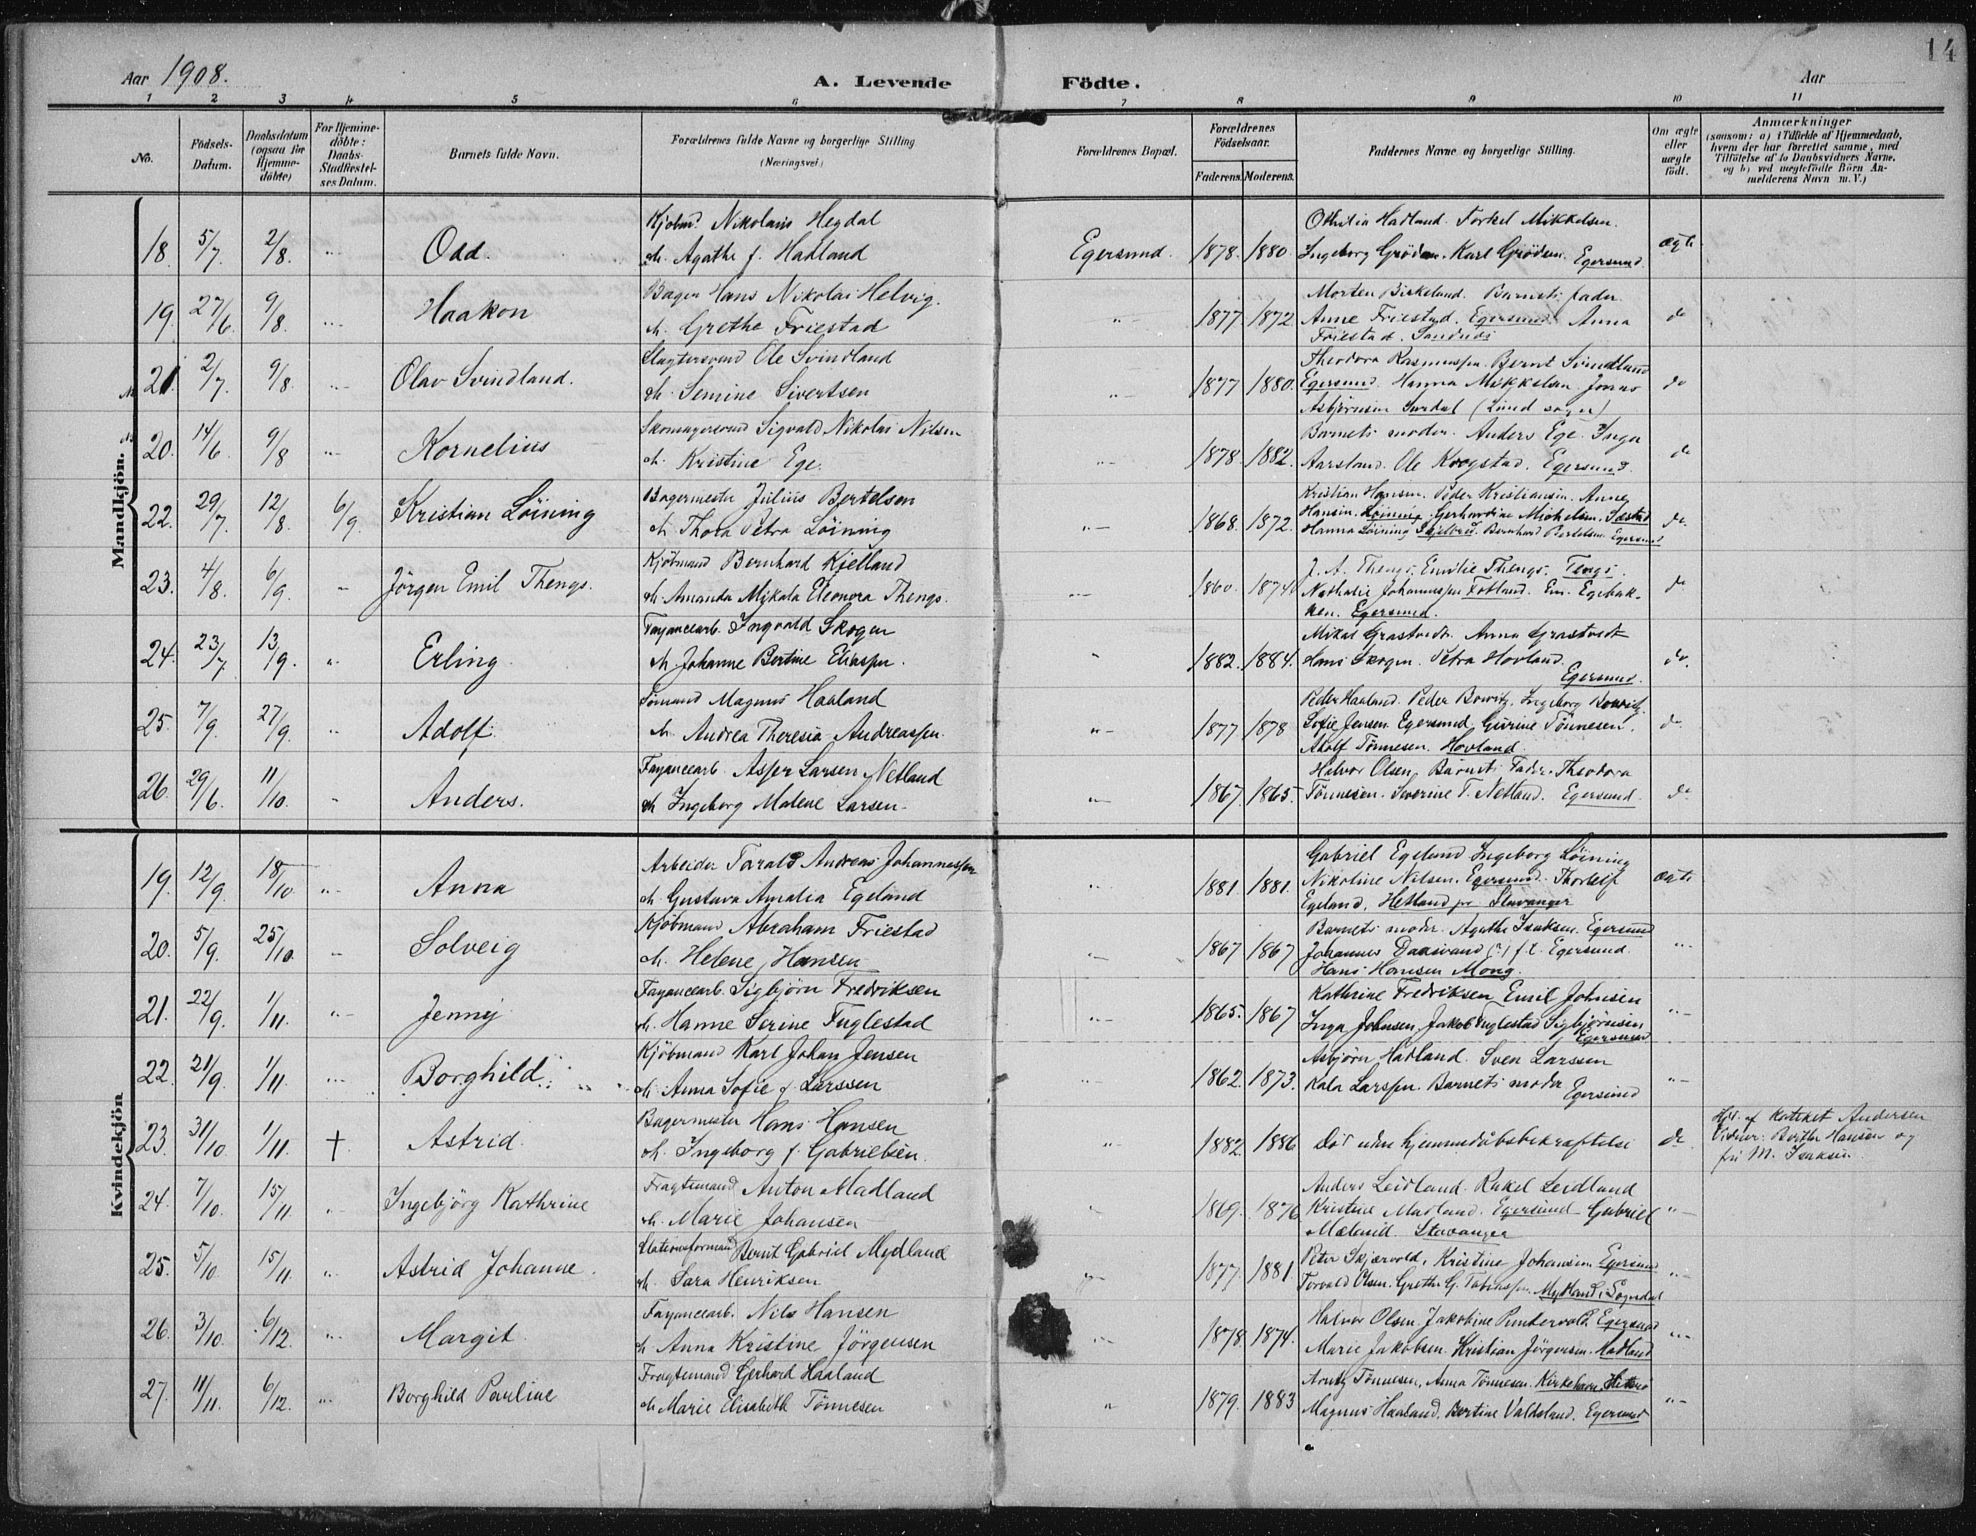 14
Aar 1908.
A. Levende Födte.
Aar
1 2 3 4 5 6 7 8 9 10 11
No.
Födsels-Datum.
Daabsdatum (ogsaa for Hjemme-döbte)
For Hjemme-döbte: Daabs-Stadfæstel-ses Datum.
Barnets fulde Navn.
Forældrenes fulde Navne og borgerlige Stilling (Næringsvei)
Forældrenes Bopæl.
Forældrenes Födselsaar.
Faderens. Moderens.
Faddernes Navne og borgerlige Stilling.
Om ægte eller uægte födt.
Anmærkninger
(saasom: a) i Tilfælde af Hjemmedaab,
hvem der har forrettet samme, med
Tilföielse af to Daabsvidners Navne.
og b) ved uægtefödte Börn An-
melderens Navn m. V.)
Mandkjön.
Kjöbm. Nikolais Hegdal Othilia Hadland. Torkel Mikkelsen.
18. 5/7 2/8 Odd. m. Agathe f. Hadland Egersund. 1878. 1880. Ingeborg Gröden. Karl Gröden. Egersund ægte
Bager Hans Nikolai Helvig. Morten Birkeland. Barnets fader.
19. 27/6 9/8 Haakon m. Grethe Friestad 1877. 1872. Anne Friestad. Egersund. Anna do
Friestad.
Slagtersvend Ole Svindland Theodora Rasmussen. Bernt Svindland
21. 2/7 9/8. Olav Svindland. m. Semine Sivertsen 1877 1880. Egersund. Hanna Mikkelsen. Jonas do
Asbjörnsen (Lund sogn)
Skomagersvend Sigvald Nikolai Nilsen Barnets moder. Anders Ege. Inga
20. 14/6 9/8 Kornelius m. Kristine Ege. 1878. 1882. Aarsland. Ole Krogstad. Egersund. do
Bagermester Julius Bertelsen Kristian Hansen. Peder Kristiansen. Anne
22. 29/7 12/8 6/9 Kristian Löining m. Thora Petra Löining 1868. 1872. Hansen. Löining. Gerhardine Mickelsen. do.
Hanna Löining Bernhard Bertelsen Egersund
Kjöbmand Bernhard Kjelland J. A. Thengs. Emilie Thengs. Tengs.
23. 4/8. 6/9. Jörgen Emil Thengs. m. Amanda Mikala Eleonora Thengs. 1860. 1874. Nathalie Johannessen Fotland. Em. Egebak- do
ken. Egersund.
Fayancearb. Ingvald Skogen Mikal Grastvedt. Anna Grastvedt
24. 23/7 13/9. Erling. m. Johanne Bertine Eliassen. 1882. 1884. Hans Skogen. Petra Hovland. Egersund. do.
Sömand Magnus Haaland Peder Haaland. Peder Bowitz. Ingeborg Bowitz.
25. 7/9. 27/9. Adolf. m. Andrea Theresia Andreassen. 1877 1878 Sofie Jensen Egersund. Gurine Tönnesen. do
Adolf Tönnesen. Hovland.
Fayancearb. Asser Larsen Netland Halvor Olsen, Barnets Fader. Theodora
26. 29/6. 11/10. Anders. m. Ingeborg Malene Larsen. 1867. 1865. Tönnesen. Severine T. Netland. Egersund. do
Kvindekjön
Arbeider Tarald Andreas Johannessen Gabriel Egeland Ingeborg Löining
19. 12/9. 18/10 Anna m. Gustava Amalia Egeland 1881. 1881. Nikoline Nilsen. Egersund. Thorleif ægte
Egeland. Hetland pr Stavanger
Kjöbmand Abraham Friestad Barnets moder. Agathe Isaksen. Egersund
20. 5/9. 25/10. Solveig m. Helene Hansen 1867 1867 Johannes Daasvand (?) f. t. Egersund.
Hans Hansen Mong.
Fayancearb. Sigbjörn Fredriksen Kathrine Fredriksen Emil Johnsen
21. 22/9 1/11. Jenny m. Hanne Serine Fuglestad 1865. 1867 Inga Johnsen, Jakob Fuglestad Sigbjörnsen Egersund
Kjöbmand Karl Johan Jensen Asbjörn Hadland. Sven Larssen
22. 21/9. 1/11. Borghild. m. Anna Sofie f. Larssen 1862. 1873. Kala Larssen. Barnets moder Egersund
Bagermester Hans Hansen Hjd. af Kateket Andersen
23. 31/10. 1/11. † Astrid m. Ingeborg f. Gabrielsen. 1882. 1886. Död uden hjemmedaabsbekræftelse do Vidner: Berthe Hansen og
fru M. Isaksen.
Fragtemand Anton Madland Anders Leidland. Rakel Leidland
24. 7/10. 15/11. Ingebjörg Kathrine m. Marie Johansen 1869. 1876 Kristine Madland. Egersund Gabriel
Mælund. Stavanger
Stationsformand Bernt Gabriel Mydland Peter Skjærvold, Kristine Johansen Egersund
25. 5/10. 15/11. Astrid Johanne. m. Sara Henriksen 1877. 1881. Torvald Olsen. Grethe G. Tobiassen. Mydland, Sogndal
Fayancearb. Nils Hansen Halvor Olsen. Jakobine Puntervold. Egersund
26. 3/10. 6/12. Margit. m. Anna Kristine Jörgensen 1878. 1874. Marie Jakobsen Kristian Jörgensen. Madland
Fragtemand Gerhard Haaland Tönnesen, Anna Tönnesen. Kirkehavn, Hitterö
27. 11/11. 6/12. Borghild Pauline m. Marie Elisabeth Tönnesen 1879. 1883 Magnus Haaland. Bertine Valdeland. Egersund